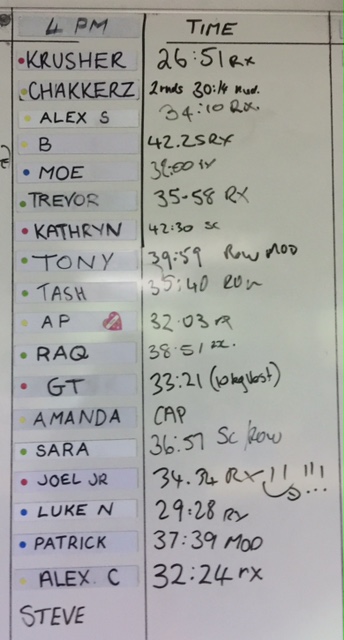 4 PM TIME
KRUSHER 26:51 Rx
CHAKKERZ 2 rnds 30:14
ALEX S 34:10 Rx.
B 42.25 RX
MOE
TREVOR 35-58 RX
KATHRYN 42:30 SC
TONY 39:59 Row MOD
TASH 35:40 ROW
AP 32.03 rx
RAQ 38.51 rx.
GT 33:21 (10kg Vest)
AMANDA CAP
SARA 36:57 Sc/Row
JOEL JR 34.34 RX!! !!!
LUKE N 29:28 Rx
PATRICK 37:39 MOD
ALEX. C 32:24 rx
STEVE